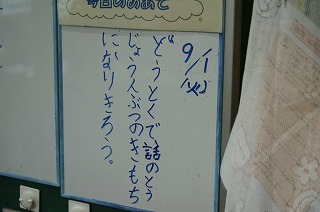 今日のめあて
9/1
(火)
どうとくで、話のとう
じょうじんぶつのきもち
になりきろう。